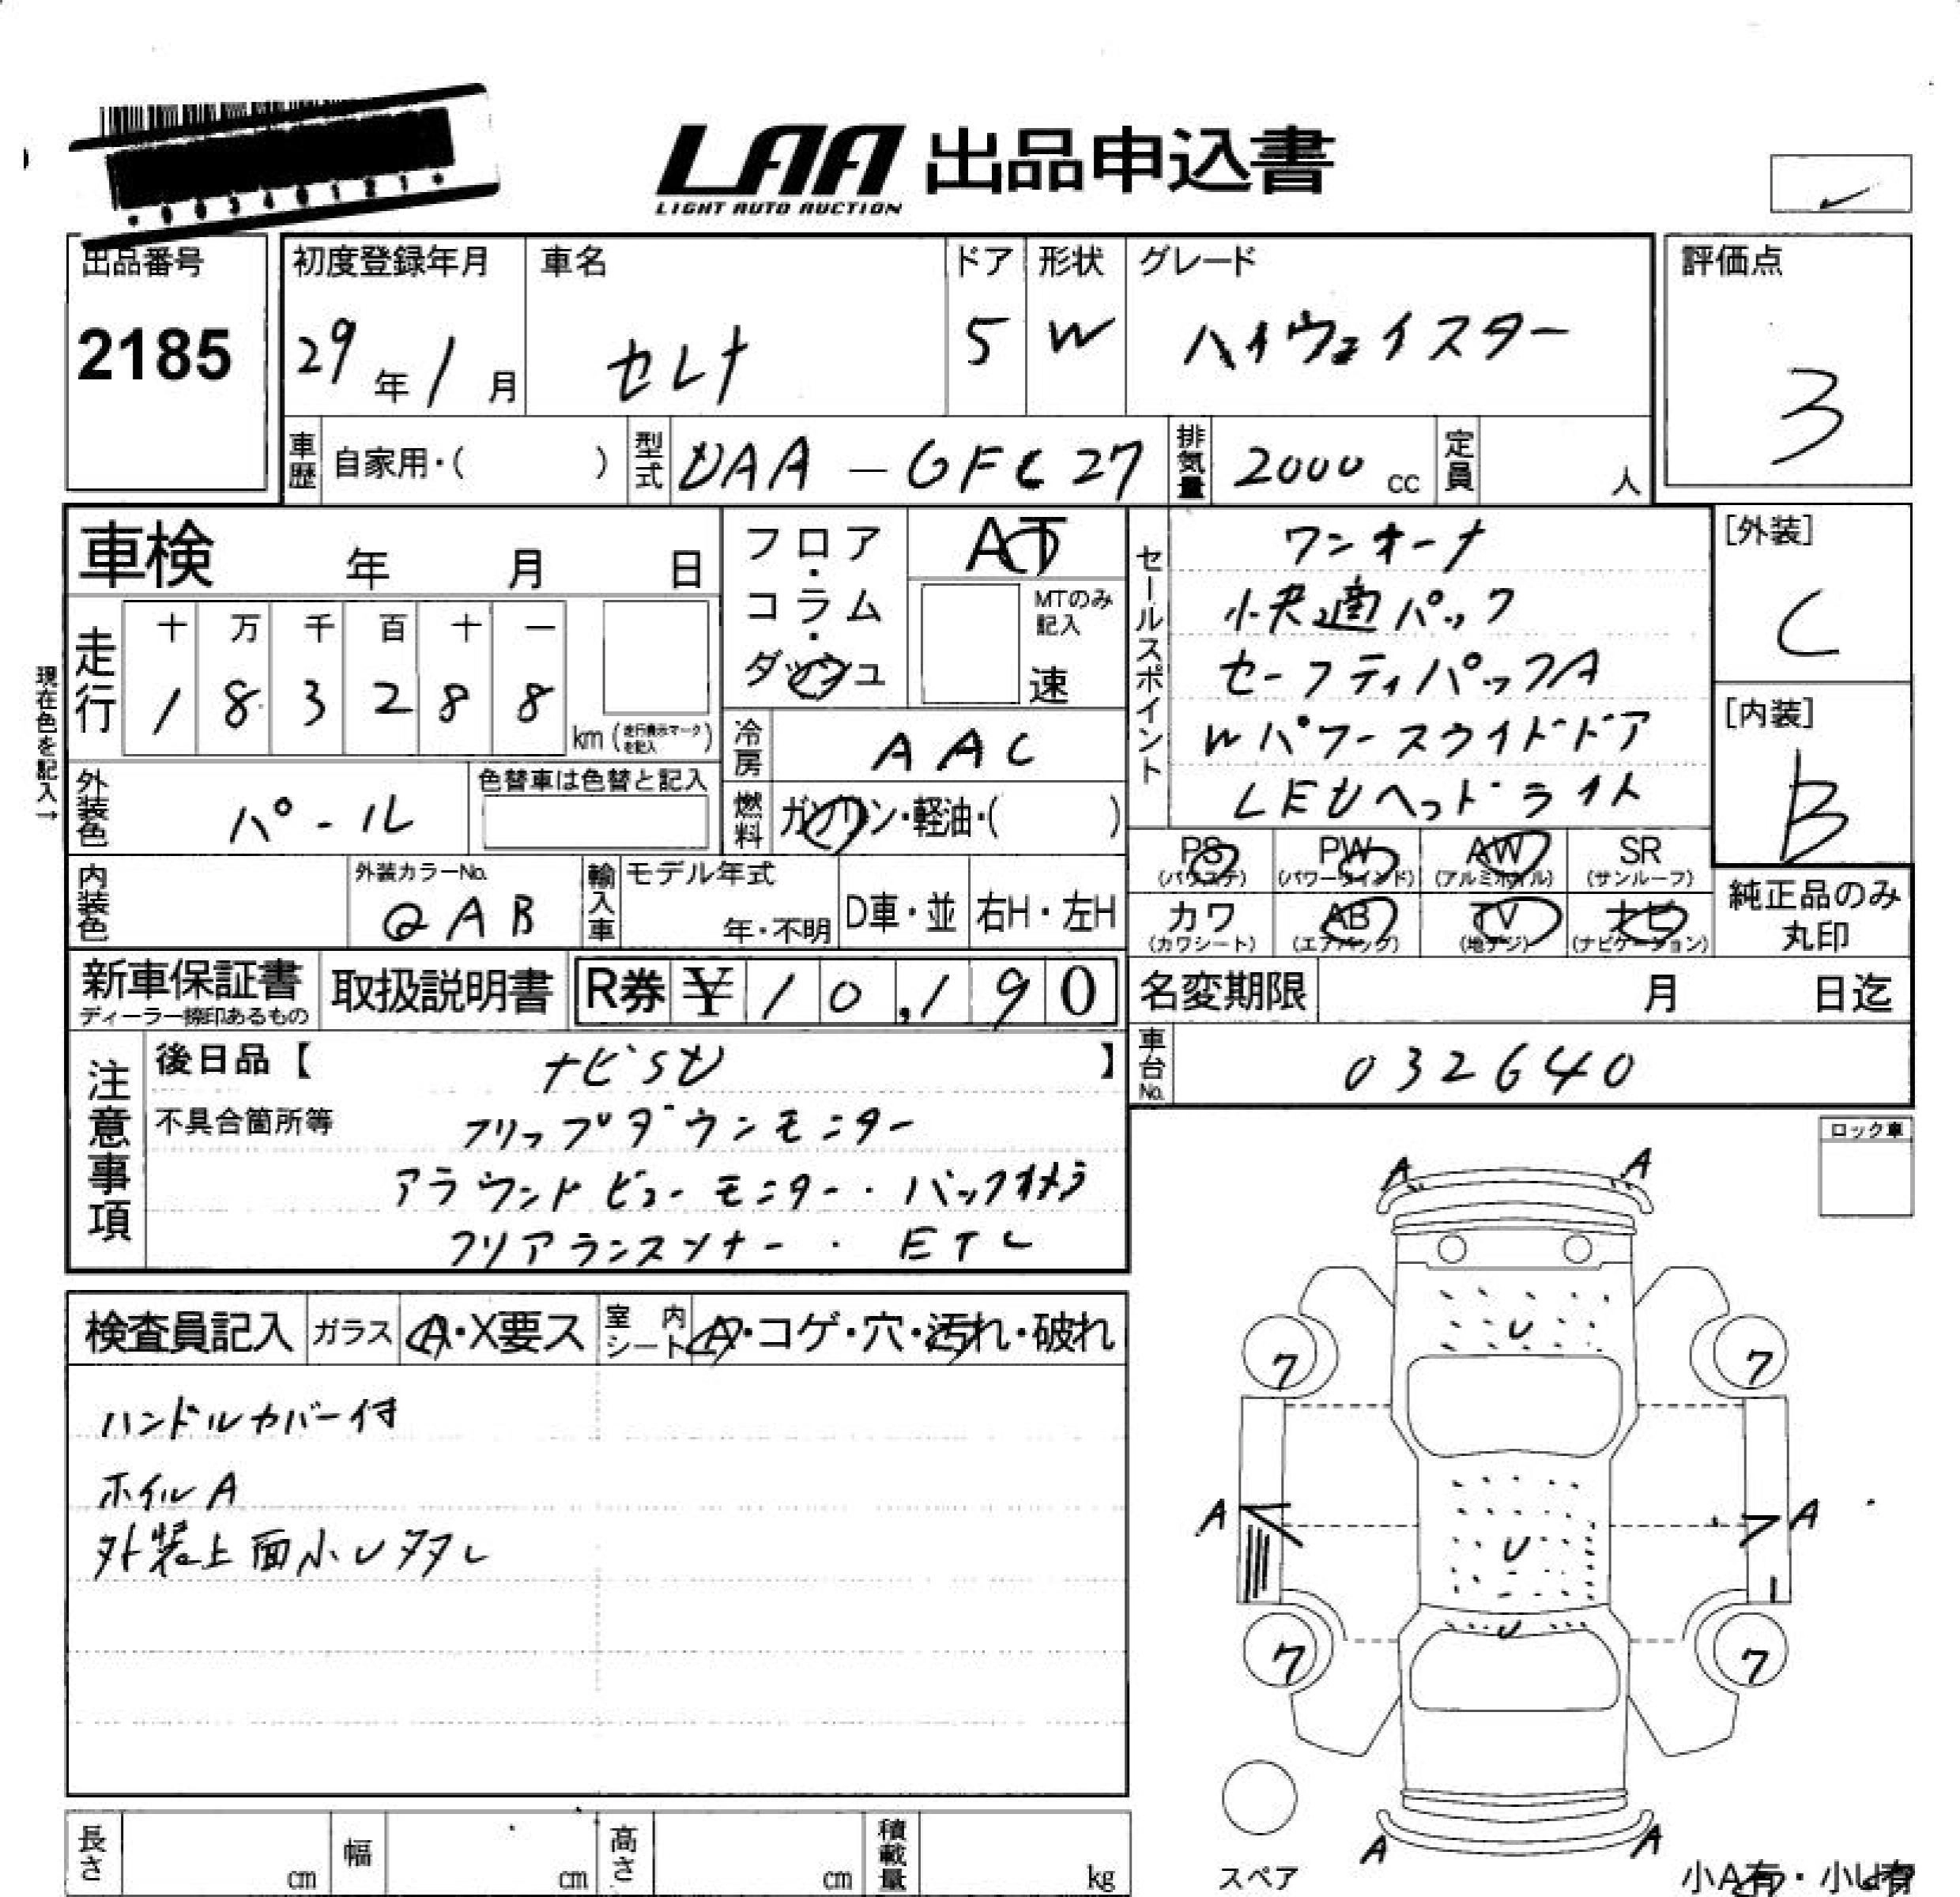 *00340121*
LAA 出品申込書
LIGHT AUTO AUCTION
出品番号
2185
初度登録年月
29年1月
車名
セレナ
ドア
5
形状
W
グレード
ハイウェイスター
評価点
3
車歴 自家用・( )
型式 DAA-GFC27
排気量 2000cc
定員 人
車検 年 月 日
フロア・コラム・ダッシュ
AT
MTのみ記入
速
セールスポイント
ワンオーナ
快適パック
セーフティパックA
Wパワースライドドア
LEDヘッドライト
[外装]
C
[内装]
B
現在色を記入→
走行
十 万 千 百 十 一
1 8 3 2 8 8
km (走行表示マークを記入)
冷房 AAC
燃料 ガソリン・軽油・( )
外装色 パール
色替車は色替と記入
内装色
外装カラーNo.
QAB
輸入車
モデル年式
年・不明
D車・並
右H・左H
PS
(パワステ)
PW
(パワーウインド)
AW
(アルミホイル)
SR
(サンルーフ)
カワ
(カワシート)
AB
(エアバッグ)
TV
(地デジ)
ナビ
(ナビゲーション)
純正品のみ
丸印
新車保証書
ディーラー捺印あるもの
取扱説明書
R券 ¥10,190
名変期限 月 日迄
車台No. 032640
注意事項
後日品【 ナビSD 】
不具合箇所等
フリップダウンモニター
アラウンドビューモニター・バックカメラ
クリアランスソナー・ETC
ロック車
検査員記入
ガラス A・X要ス
室内シート A・コゲ・穴・汚れ・破れ
ハンドルカバー付
ホイルA
外装上面小U多タし
A A
U
7 7
A A
U
U
7 7
A A
スペア
小A有・小U有
長さ cm
幅 cm
高さ cm
積載量 kg